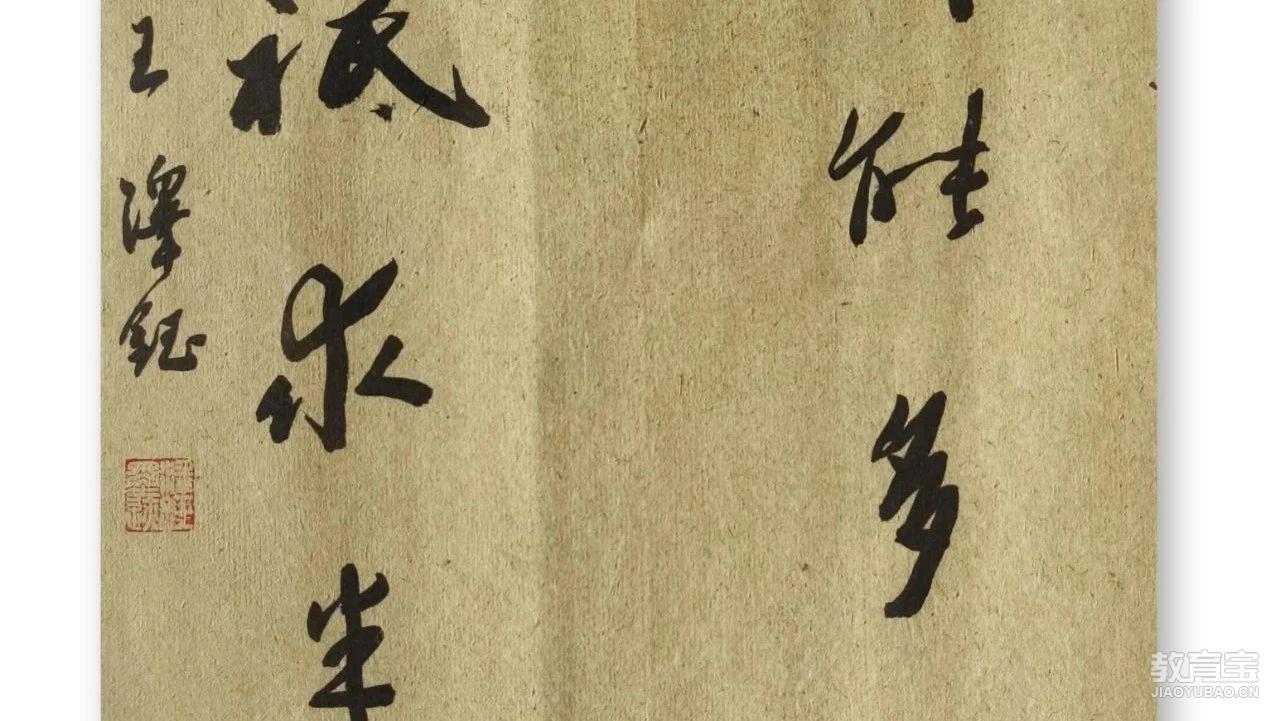 能多
祗求半
王澤鈺
教育宝
JIAOYUBAO.CN